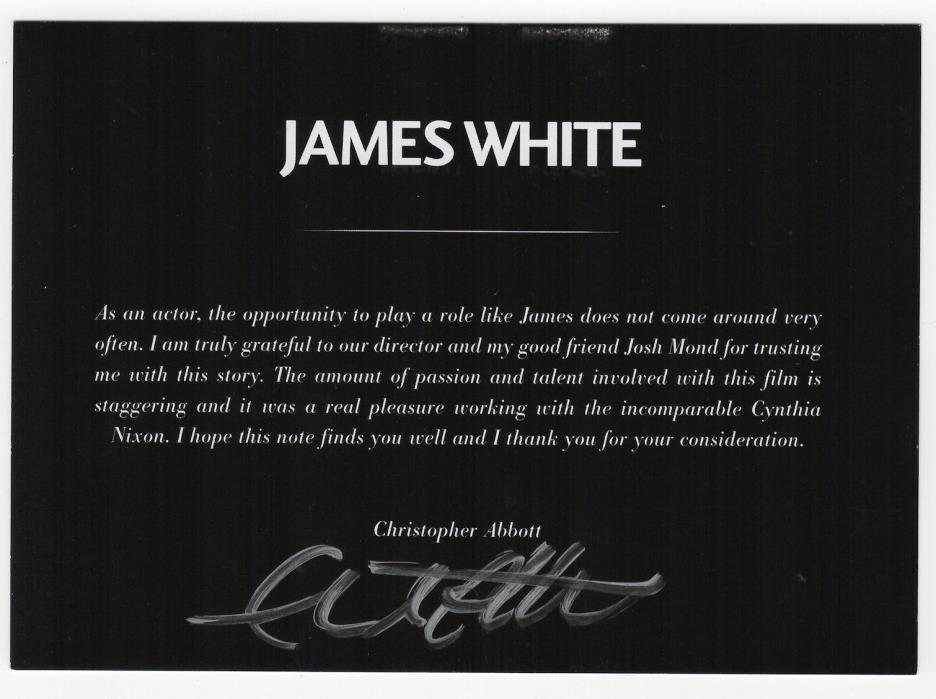 JAMES WHITE
As an actor, the opportunity to play a role like James does not come around very
often. I am truly grateful to our director and my good friend Josh Mond for trusting
me with this story. The amount of passion and talent involved with this film is
staggering and it was a real pleasure working with the incomparable Cynthia
Nixon. I hope this note finds you well and I thank you for your consideration.
Christopher Abbott